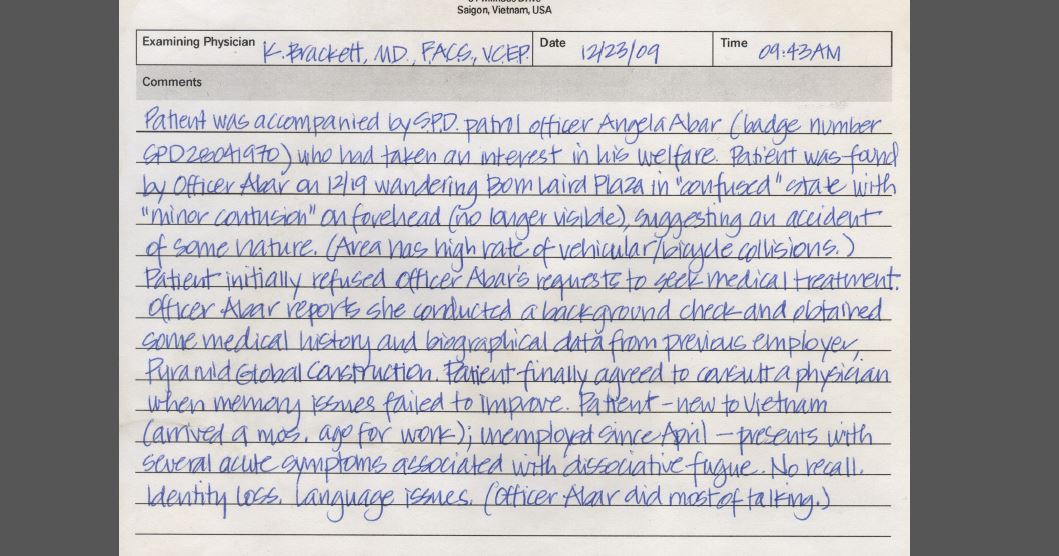 Saigon, Vietnam, USA
Examining Physician K. Brackett, MD., F.A.C.S., V.C.E.P. Date 12/23/09 Time 09:43AM
Comments
Patient was accompanied by S.P.D. patrol officer Angela Abar (badge number
SPD28041970) who had taken an interest in his welfare. Patient was found
by Officer Abar on 12/19 wandering Bom Laird Plaza in "confused" state with
"minor contusion" on forehead (no longer visible), suggesting an accident
of some nature. (Area has high rate of vehicular/bicycle collisions.)
Patient initially refused Officer Abar's requests to seek medical treatment.
Officer Abar reports she conducted a background check and obtained
some medical history and biographical data from previous employer,
Pyramid Global Construction. Patient finally agreed to consult a physician
when memory issues failed to improve. Patient - new to Vietnam
(arrived 9 mos. ago for work); unemployed since April - presents with
several acute symptoms associated with dissociative fugue. No recall.
Identity loss. Language issues. (Officer Abar did most of talking.)